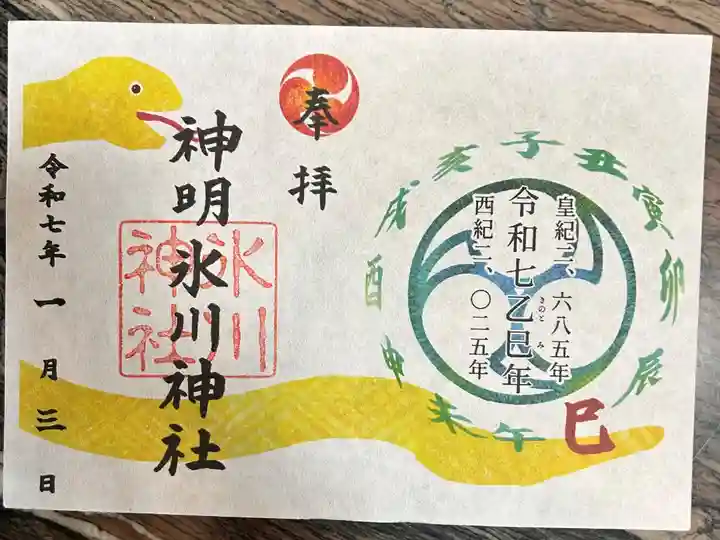 皇紀二、六八五年
令和七乙巳年
きのと み
西紀二、〇二五年
子
丑
寅
卯
辰
巳
午
未
申
酉
戌
亥
奉拝
神明氷川神社
氷川
神社
令和七年一月三日